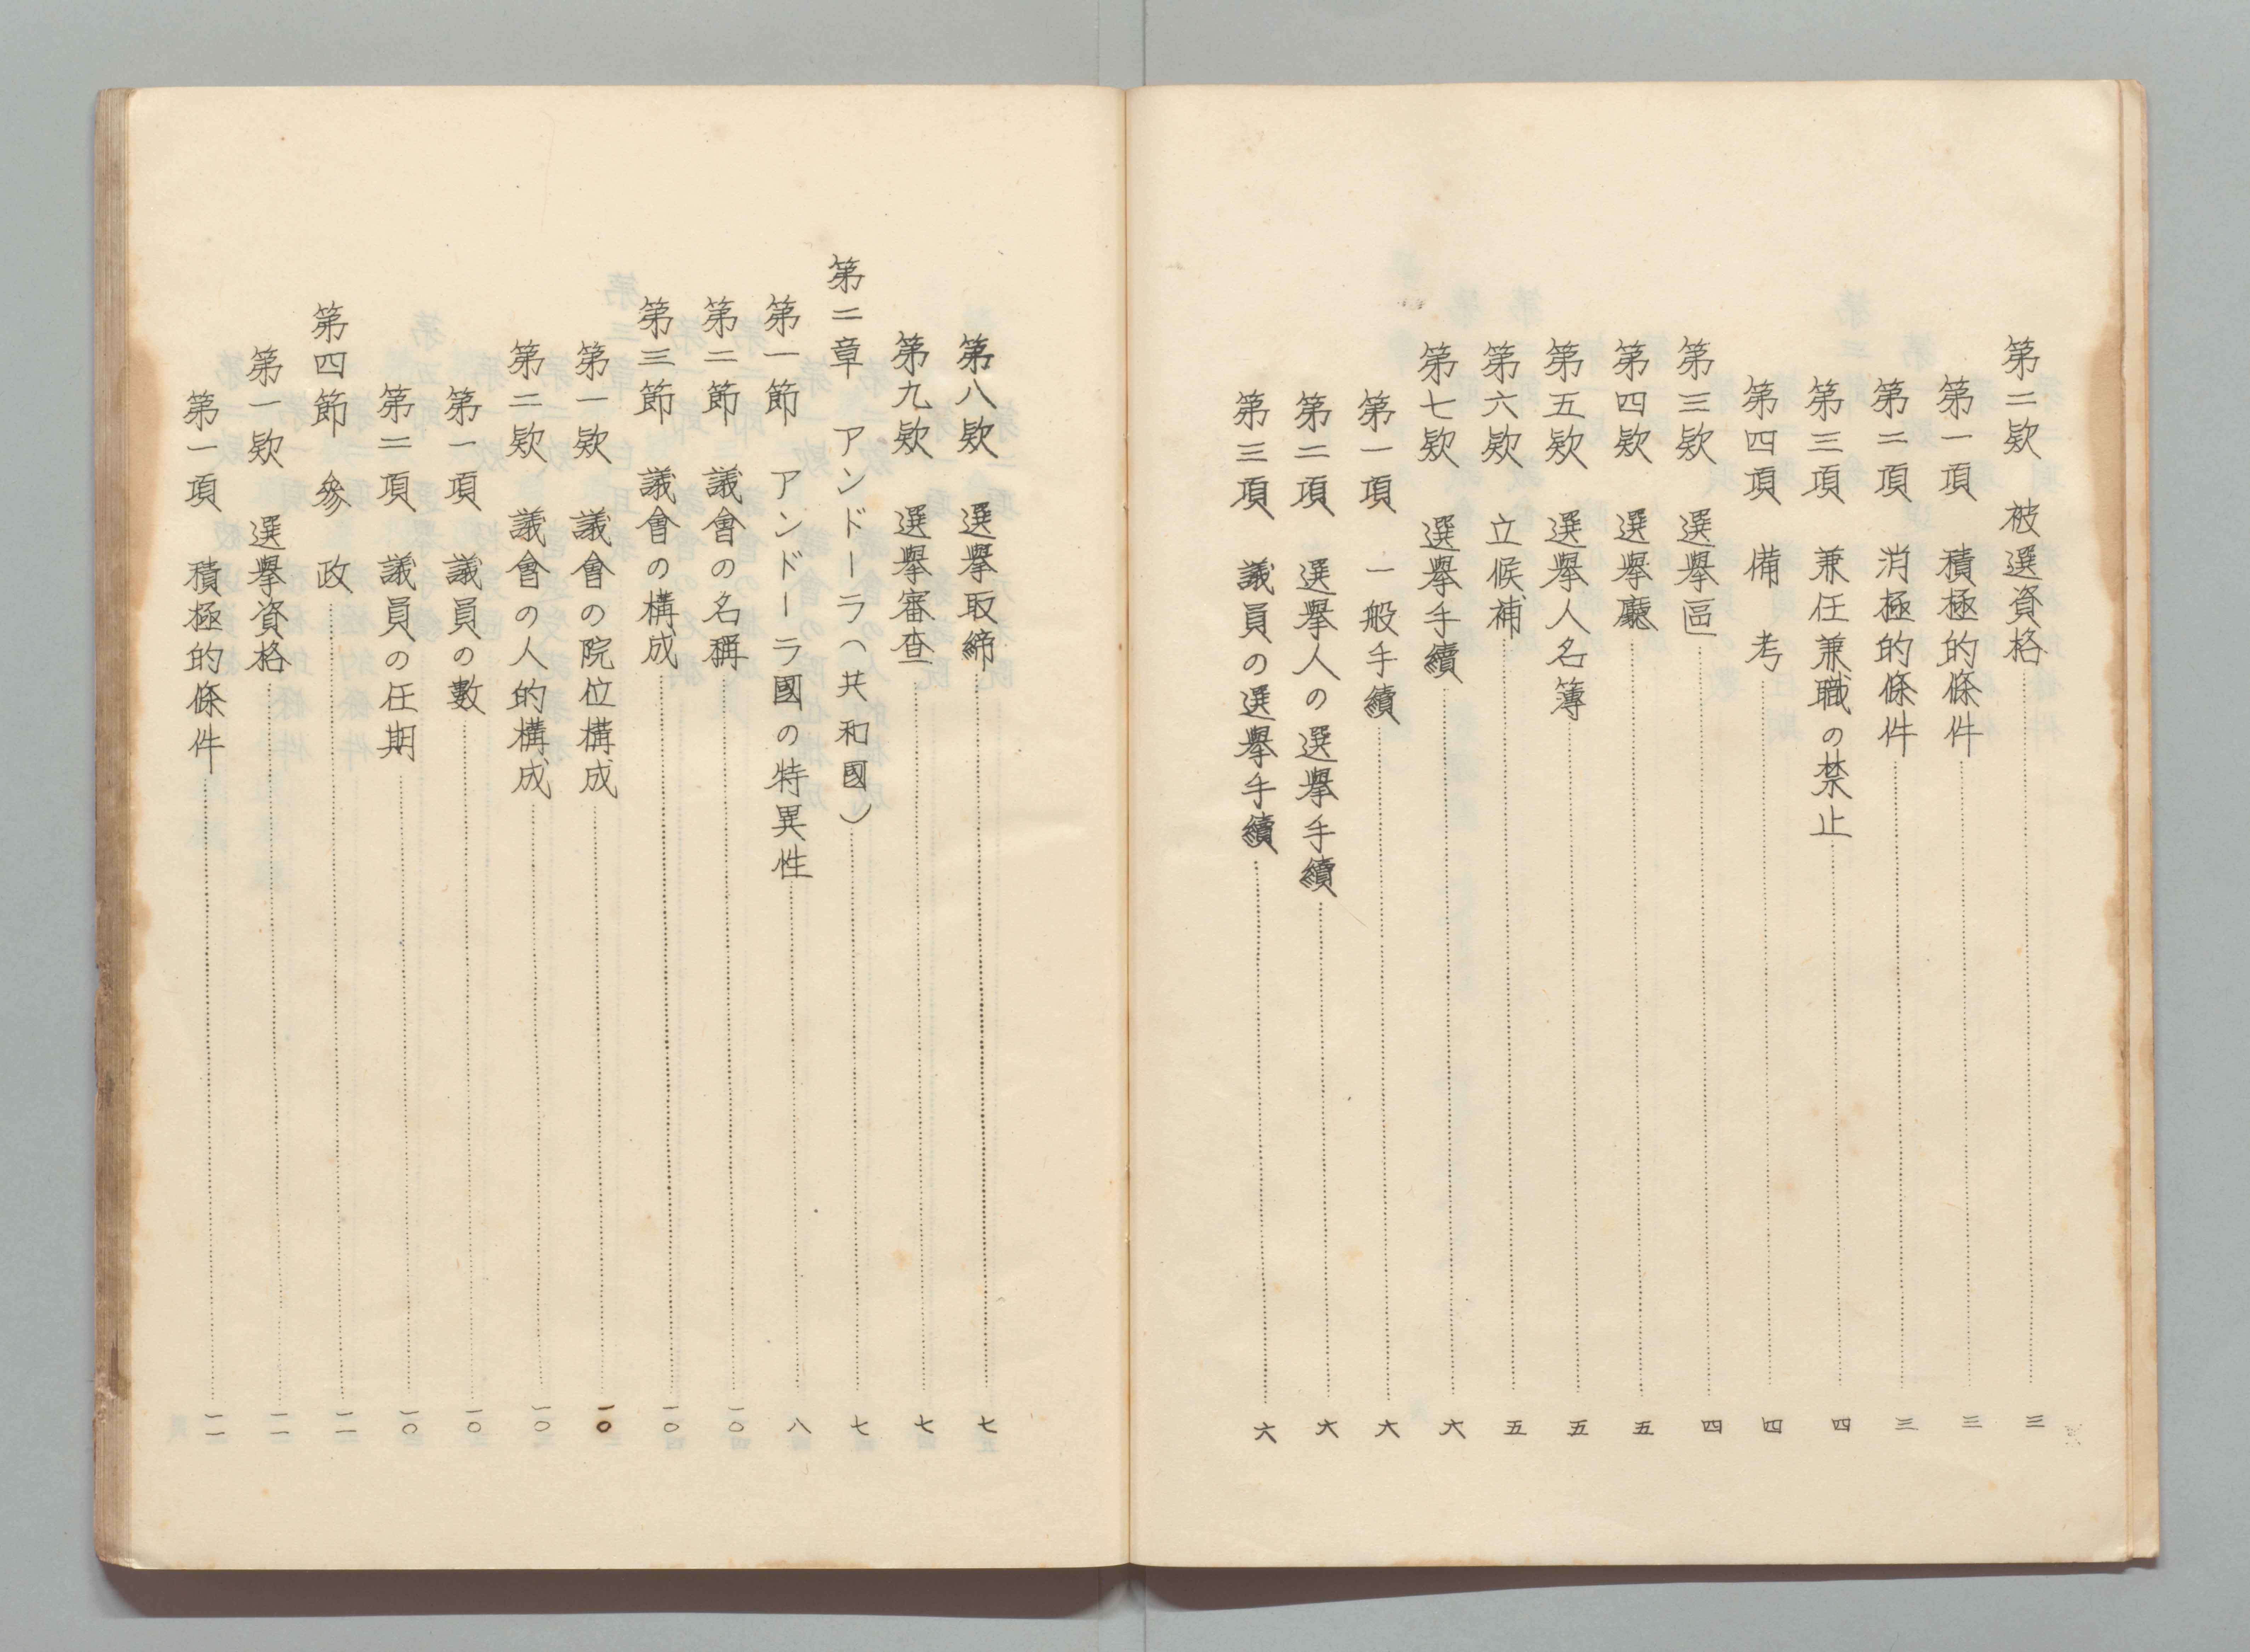 第二欵　被選資格……三
第一項　積極的條件……三
第二項　消極的條件……三
第三項　兼任兼職の禁止……四
第四項　備考……四
第三欵　選擧區……四
第四欵　選擧廳……五
第五欵　選擧人名簿……五
第六欵　立候補……五
第七欵　選擧手續……六
第一項　一般手續……六
第二項　選擧人の選擧手續……六
第三項　議員の選擧手續……六
第八欵　選擧取締……七
第九欵　選擧審査……七
第二章　アンドーラ（共和國）……七
第一節　アンドーラ國の特異性……八
第二節　議會の名稱……一〇
第三節　議會の構成……一〇
第一欵　議會の院位構成……一〇
第二欵　議會の人的構成……一〇
第一項　議員の數……一〇
第二項　議員の任期……一〇
第四節　參政……一一
第一欵　選擧資格……一一
第一項　積極的條件……一一